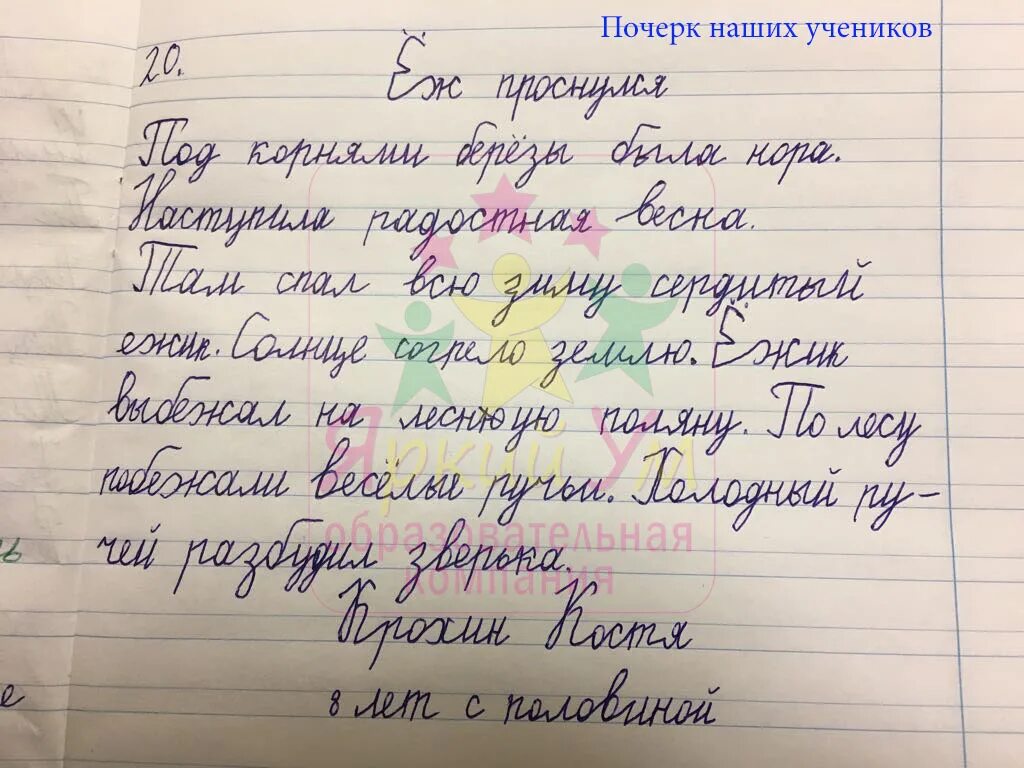 Почерк наших учеников
20.
Ёж проснулся
Под корнями берёзы была нора.
Наступила радостная весна.
Там спал всю зиму сердитый
ежик. Солнце согрело землю. Ёжик
выбежал на лесную поляну. По лесу
побежали весёлые ручьи. Холодный ру-
чей разбудил зверька.
Крохин Костя
8 лет с половиной
Яркий Ум
образовательная
компания